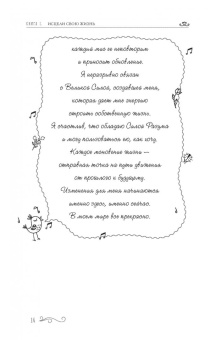 ИСЦЕЛИ СВОЮ ЖИЗНЬ
каждый миг ее неповторим
и приносит обновление.
Я неразрывно связан
с Великой Силой, создавшей меня,
которая дает мне энергию
строить собственную жизнь.
Я счастлив, что обладаю Силой Разума
и могу пользоваться ею, как хочу.
Каждое мгновение жизни —
отправная точка на пути движения
от прошлого к будущему.
Изменения для меня начинаются
именно здесь, именно сейчас.
В моем мире все прекрасно.